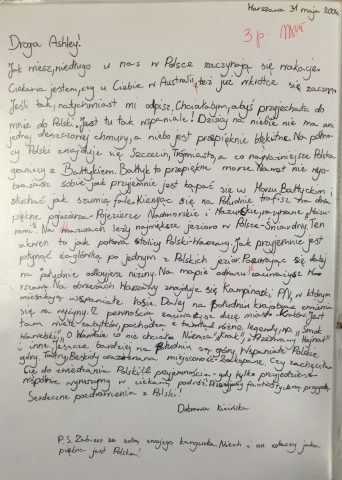 Warszawa 31 maja 200
3 p.
Droga Ashley!
Jak wiesz, niedługo u nas w Polsce zaczynają się wakacje.
Ciekawa jestem, czy u Ciebie w Australii, też już wkrótce się zaczną.
Jeśli tak, natychmiast mi odpisz. Chciałabym, abyś przyjechała do
mnie do Polski. Jest tu tak wspaniale! Dzisiaj na niebie nie ma ani
jednej deszczowej chmury, a niebo jest przepięknie błękitne. Na północy
Polski znajduje się Szczecin, Trójmiasto, a co najważniejsze Polska
graniczy z Bałtykiem. Bałtyk to przepiękne morze. Nawet nie wyo-
brażasz sobie jak przyjemnie jest kąpać się w Morzu Bałtyckim i
słuchać jak szumią fale. Kierując się na Południe trafisz na dwa
piękne pojezierza - Pojezierze Nadmorskie i Mazurskie, zwane Mazu-
rami. Na Mazurach leży największe jezioro w Polsce - Śniardwy. Ten
akwen to jak połowa stolicy Polski - Warszawy. Jak przyjemnie jest
płynąć żaglówką po jednym z Polskich jezior. Posuwając się dalej
na południe odkryjesz niziny. Na mapie od razu zauważysz Wa-
rszawę. Na obrzeżach Warszawy znajduje się Kampinoski PN, w którym
mieszkają wspaniałe łosie. Dalej na południu krajobraz zmienia
się na wyżyny. Z pewnością zauważysz duże miasto - Kraków. Jest
tam wiele zabytków, pochodzą z tamtąd różne legendy, np. "Smok
Wawelski", "O Wandzie co nie chciała Niemca", "Przerwany Hejnał"
i inne. Jeszcze bardziej na południe są góry. Wspaniałe Polskie
góry, Tatry, Beskidy oraz miejscowość - Zakopane. Czy zachęciłam
Cię do zwiedzania Polski? Z przyjemnością - gdy tylko przyjedziesz
wspólnie wyruszymy w ciekawą podróż. Przeżyjemy fantastyczną przygodę.
Serdeczne pozdrowienia z Polski!
Dobrawa
P.S. Zabierz ze sobą swojego kangurka. Niech i on zobaczy jaka
piękna jest Polska!